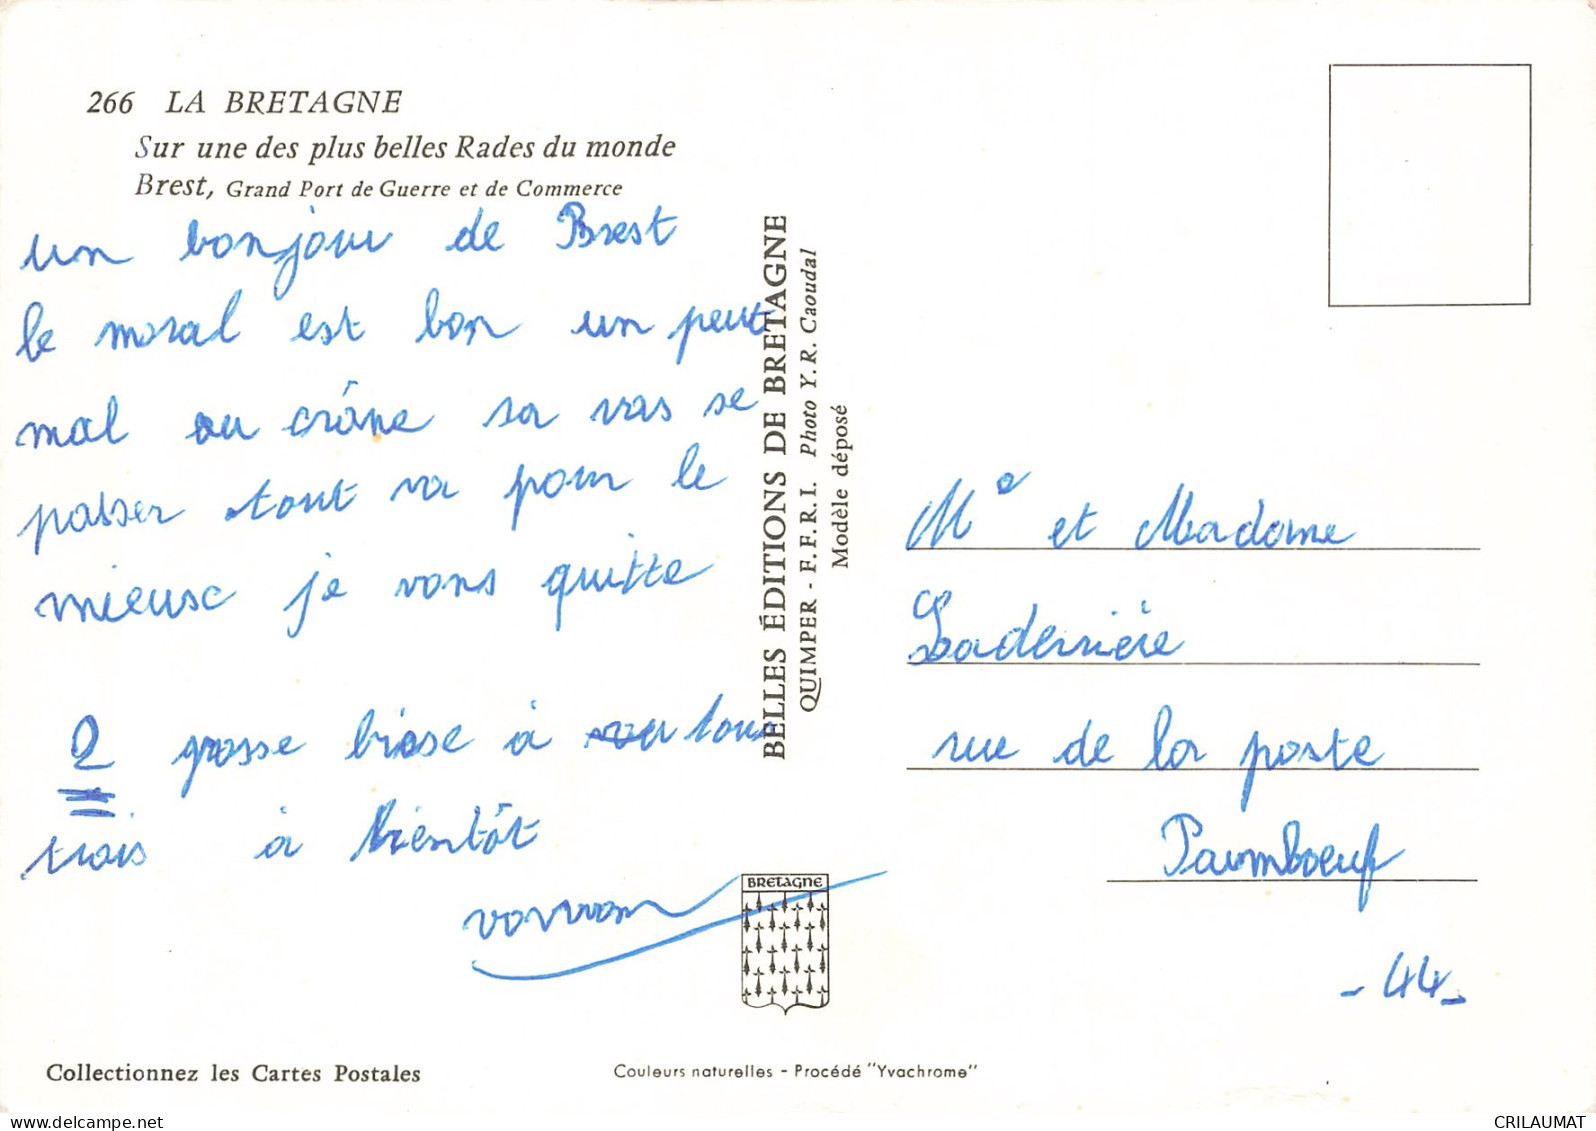 266 LA BRETAGNE
Sur une des plus belles Rades du monde
Brest, Grand Port de Guerre et de Commerce
un bonjour de Brest
le moral est bon un peut
mal au crâne sa vas se
passer tout va pour le
mieusc je vous quitte
2 grosse bisse à tous
trois à bientôt
BELLES ÉDITIONS DE BRETAGNE
QUIMPER - F.F.R.I. Photo Y. R. Caoudal
Modèle déposé
Mr et Madame
Laderrière
rue de la poste
Paimboeuf
- 44 -
BRETAGNE
Collectionnez les Cartes Postales
Couleurs naturelles - Procédé "Yvachrome"
CRILAUMAT